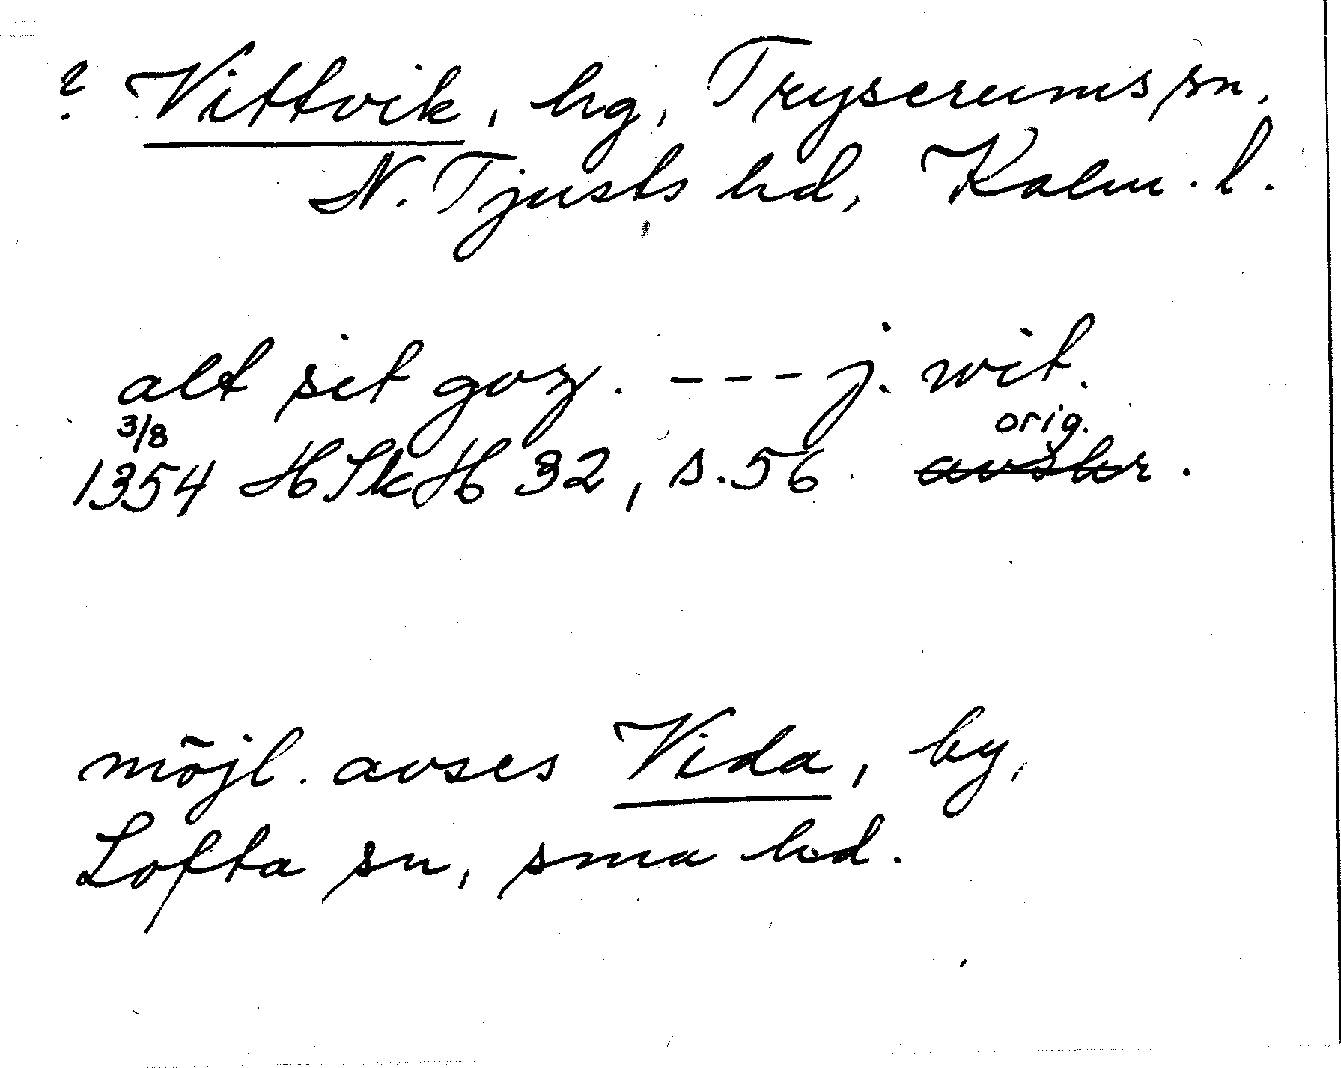 ? Vittvik, hg, Tryserums sn,
N. Tjusts hd, Kalm. l.
alt sit goz. --- j. wit.
3/8 orig.
1354 HSkH 32, s. 56. avskr.
möjl. avses Vida, by,
Lofta sn, sma hd.